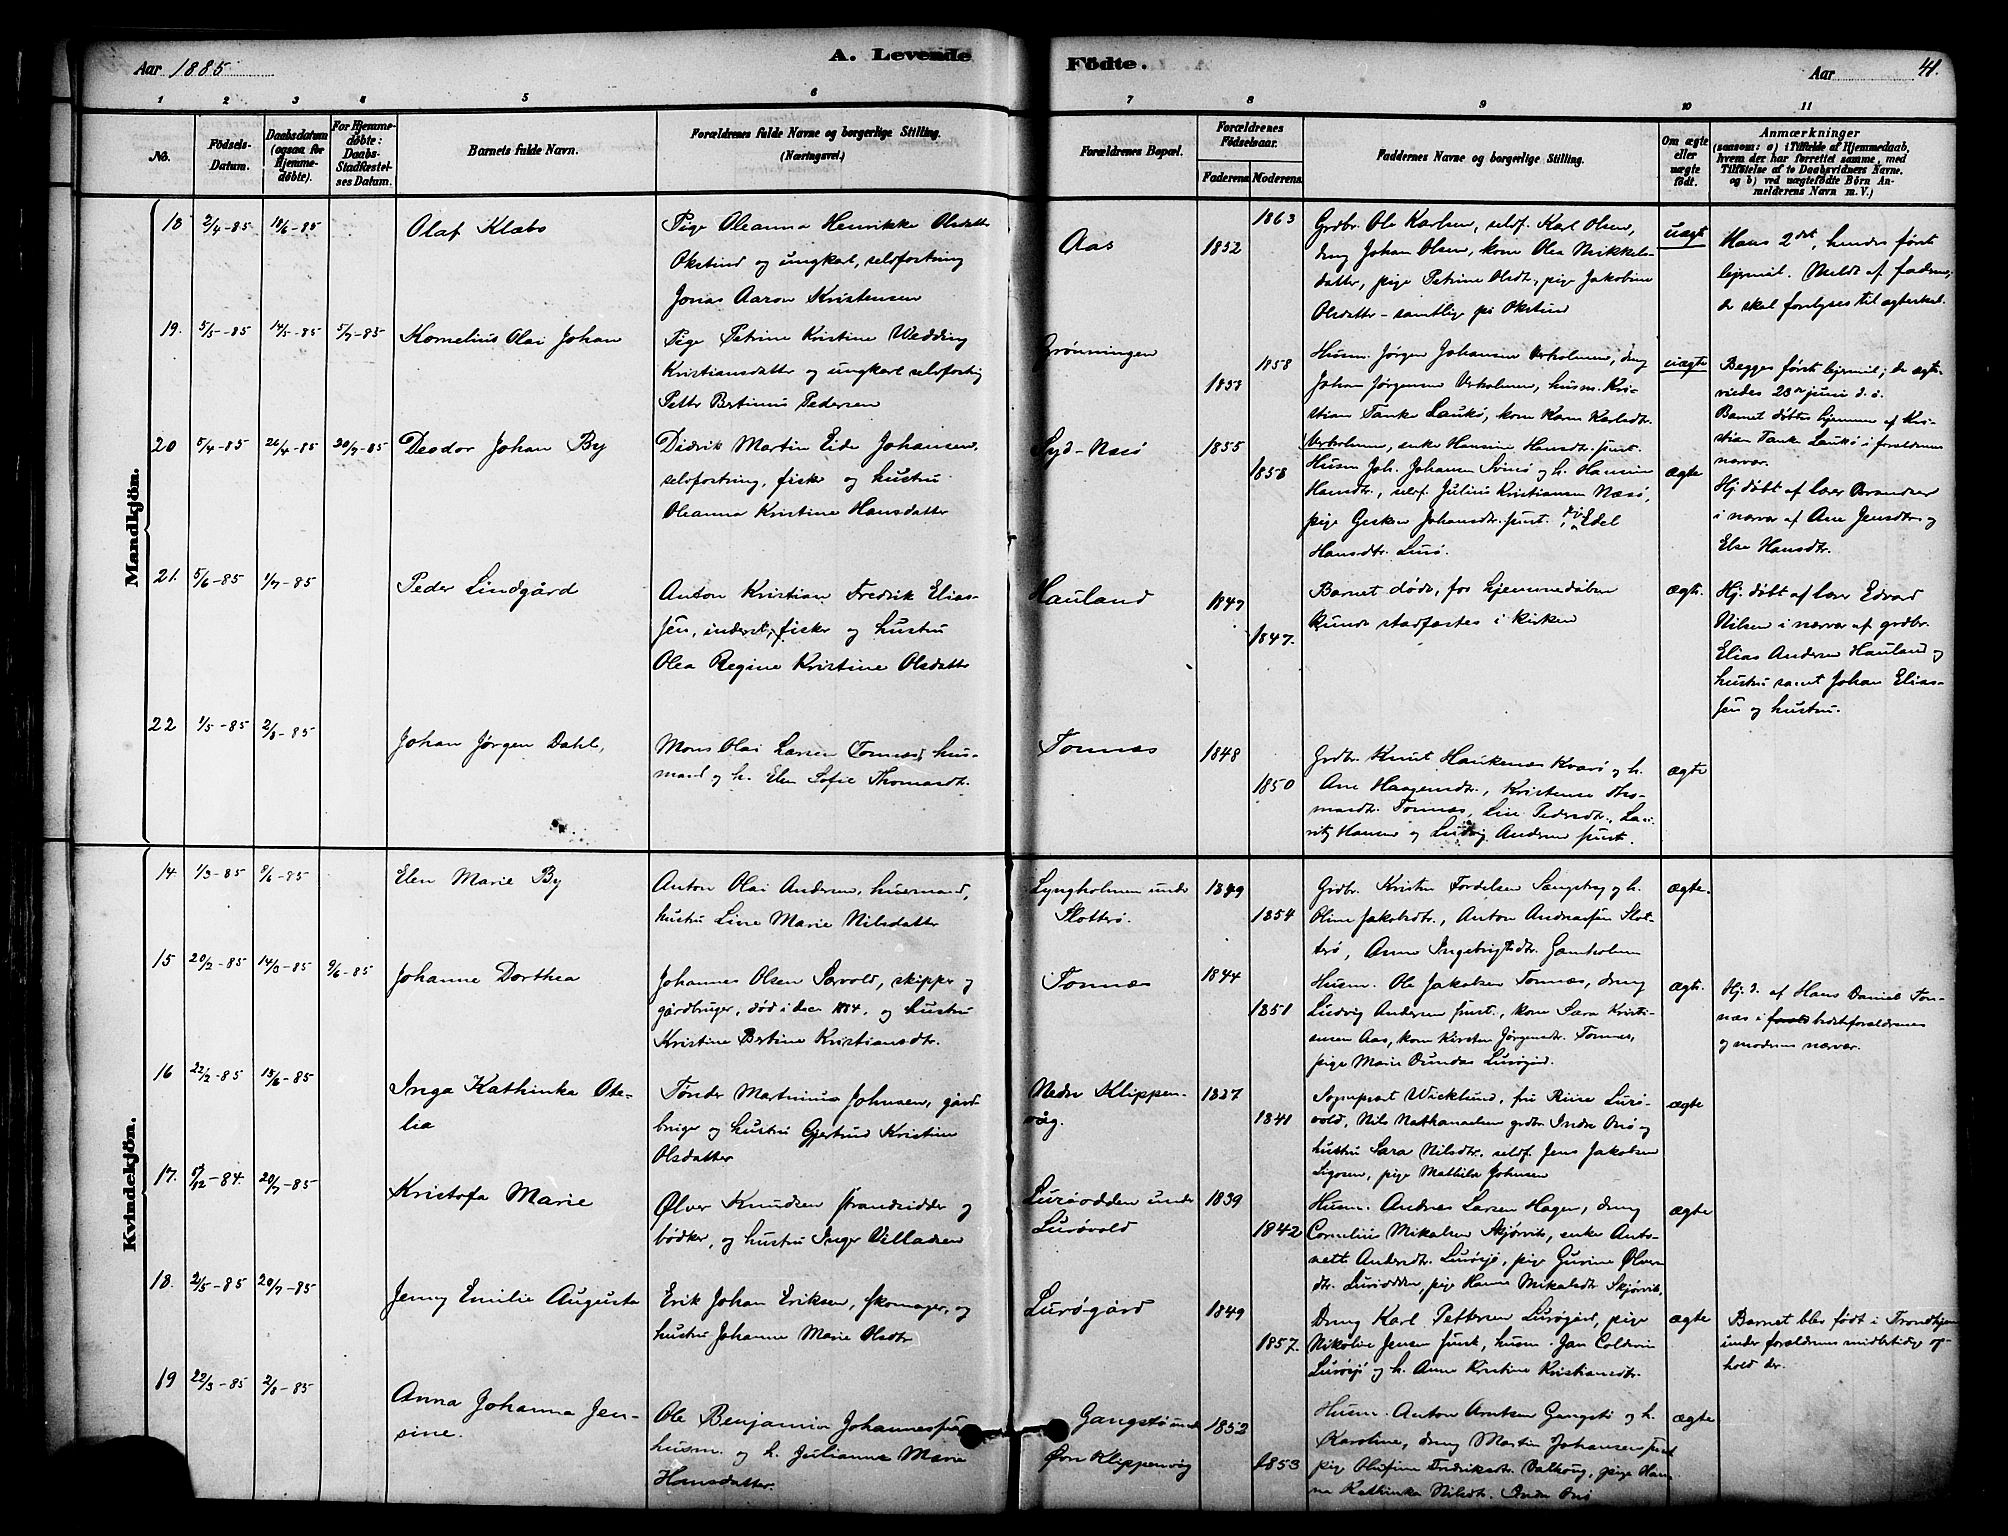 Aar 1885
A. Levende
Födte.
Aar
41.
1 2 3 4 5 6 7 8 9 10 11
No.
Födsels-
Datum.
Daabsdatum
(ogsaa for
Hjemme-
döbte).
For Hjemme-
döbte:
Daabs-
Stadfæstel-
ses Datum.
Barnets fulde Navn.
Forældrenes fulde Navne og borgerlige Stilling.
(Næringsvei.)
Forældrenes Bopæl.
Forældrenes
Födselsaar.
Faderens Moderens
Faddernes Navne og borgerlige Stilling.
Om ægte
eller
uægte
födt.
Anmærkninger
(saasom: a) i Tilfælde af Hjemmedaab,
hvem der har forrettet samme, med
Tilföielse af to Daabsvidners Navne,
og b) ved uægtefödte Börn An-
melderens Navn m. V.)
Mandkjön.
18 2/4-85 18/6-85
Olaf Klæbo
Pige Oleanna Henrikke Olsdatter
Okstind og ungkarl, selvfostring
Jonas Aaron Kristensen
Aas
1852
1863
Grdbr. Ole Karlsen, selvf. Karl Olsen,
dreng Johan Olsen, kone Olea Mikkels-
datter, pige Petrine Olsdtr., pige Jakobine
Olsdatter - samtlige på Okstind
uægte
Hans 2det, hendes første
lejermål. Meldt af faderen;
de skal forlyses til ægteskab.
19. 5/5-85 14/5-85 5/7-85
Kornelius Olai Johan
Pige Petrine Kristine Wedding
Kristiansdatter og ungkarl selvfostrig
Petter Bertinus Pedersen
Grønningen
1858
1858
Husm. Jørgen Johansen Verholmen, dreng
Johan Jørgensen Verholmen, husm. Kri-
stian Tanke Laukø, kone Karn Karlsdtr.
Verholmen, enke Hansine Hansdtr. smst.
uægte
Begges første lejermål; de ægte-
viedes 23de juni d. å.
Barnet døbtes hjemme af Kri-
stian Tanke Laukø i forældrenes
nærvær.
20 5/4-85 26/4-85 20/7-85
Deodor Johan By
Didrik Martin Eide Johansen,
selvfostring, fisker og hustru
Oleanna Kristine Hansdatter
Syd-Næsø
1855
1858
Husm Joh. Johansen Svinø og h. Hansine
Hansdtr., selvf. Julius Kristiansen Næsø,
pige Gesken Johansdtr. smst., pige Edel
Hansdtr. Lurø.
ægte
Hj. døbt af lærer Brandser
i nærvær af Ane Jensdtr. og
Else Hansdtr.
21. 5/6-85 1/7-85
Peder Lindgård
Anton Kristian Fredrik Elias-
sen, inderst, fisker og hustru
Olea Regine Kristine Olsdatter
Hauland
1849
1847.
Barnet døde, før hjemmedåben
kunde stadfæstes i kirken
ægte.
Hj. døbt af lærer Edvard
Nilsen i nærvær af grdbr.
Elias Andersen Hauland og
hustru samt Johan Elias-
sen og hustru.
22 1/5-85 2/8-85
Johan Jørgen Dahl,
Mons Olai Larsen Tonnæs, hus-
mand og h. Elen Sofie Thomasdtr.
Tonnæs
1848
1850
Grdbr. Knut Haukenæs Kvarø og h.
Ane Haagensdtr., Kristense Tho-
masdtr. Tonnæs, Line Pedersdtr., Lau-
ritz Hansen og Ludvig Andersen smst.
ægte
Kvindekjön.
14 1/3-85 8/6-85
Elen Marie By
Anton Olai Andersen, husmand,
hustru Line Marie Nilsdatter
Lyngholmen under
Slotterø.
1849
1854
Grdbr. Kristen Fordelsen Sængstrø og h.
Oline Jakobsdtr., Anton Andreassen Slot-
terø, Anne Ingebrigtsdtr. Gamholmen
ægte.
15 20/2-85 14/3-85 9/6-85
Johanne Dorthea
Johannes Olsen Sørvold, skipper og
gårdbruger, død i decr 1884, og hustru
Kristine Bertine Kristiansdtr.
Tonnæs
1844
1851
Husm. Ole Jakobsen Tonnæs, dreng
Ludvig Andersen smst., kone Sara Kristi-
ansen Aas, kone Kirsten Jørgensdtr. Tonnæs,
pige Marie Dundas Lurøgrd.
ægte.
Hj. d. af Hans Daniel Ton-
næs i bedsteforældrenes
og moderens nærvær.
16 22/2-85 15/6-85
Inga Kathinka Ote-
lia
Tønder Martinius Johnsen, gård-
bruger og hustru Gjertrud Kristine
Olsdatter
Nedre Klippen-
våg.
1827
1841
Sogneprest Wicklund, fru Riise Lurø-
vold, Nils Nathanaelsen grdbr. Indre Onø og
hustru Sara Nilsdtr. selvf. Jens Jakobsen
Sigosen, pige Mathilde Johnsen
ægte
17. 5/12-84. 20/7-85
Kristofa Marie
Ølver Knudsen strandsidder og
bødker, og hustru Inger Villadsen
Lurøodden under
Lurøvold
1839
1842
Husm. Andreas Larsen Hagen, dreng
Cornelius Mikalsen Skjørvik, enke Anto-
nette Andersdtr. Lurøsjø, pige Gurine Ølvers-
dtr. Lurøodden, pige Hanna Mikalsdtr. Skjørvik.
ægte
18. 2/5-85 20/7-85
Jenny Emilie Augusta
Erik Johan Eriksen, skomager, og
hustru Johanne Marie Olsdtr
Lurøgård
1849
1857.
Dreng Karl Pettersen Lurøgård, pige
Nikoline Jensen smst, husm. Jan Coldevin
Lurøsjø og h. Anne Kristine Kristiansdtr.
ægte
Barnet blev født i Trondhjem
under forældrenes midlertidige op-
hold der.
19 22/3-85 2/8-85
Anna Johanna Jen-
sine.
Ole Benjamin Johannessen
husm. og h. Julianna Marie
Hansdatter.
Gangstø under
Øvre Klippenvåg
1852
1853
Husm. Anton Arntsen Gangstø og h.
Karoline, dreng Martin Johansen smst
pige Olufine Fredriksdtr. Valkøug, pige Han-
na Kathinka Nilsdtr. Indre Onø
ægte